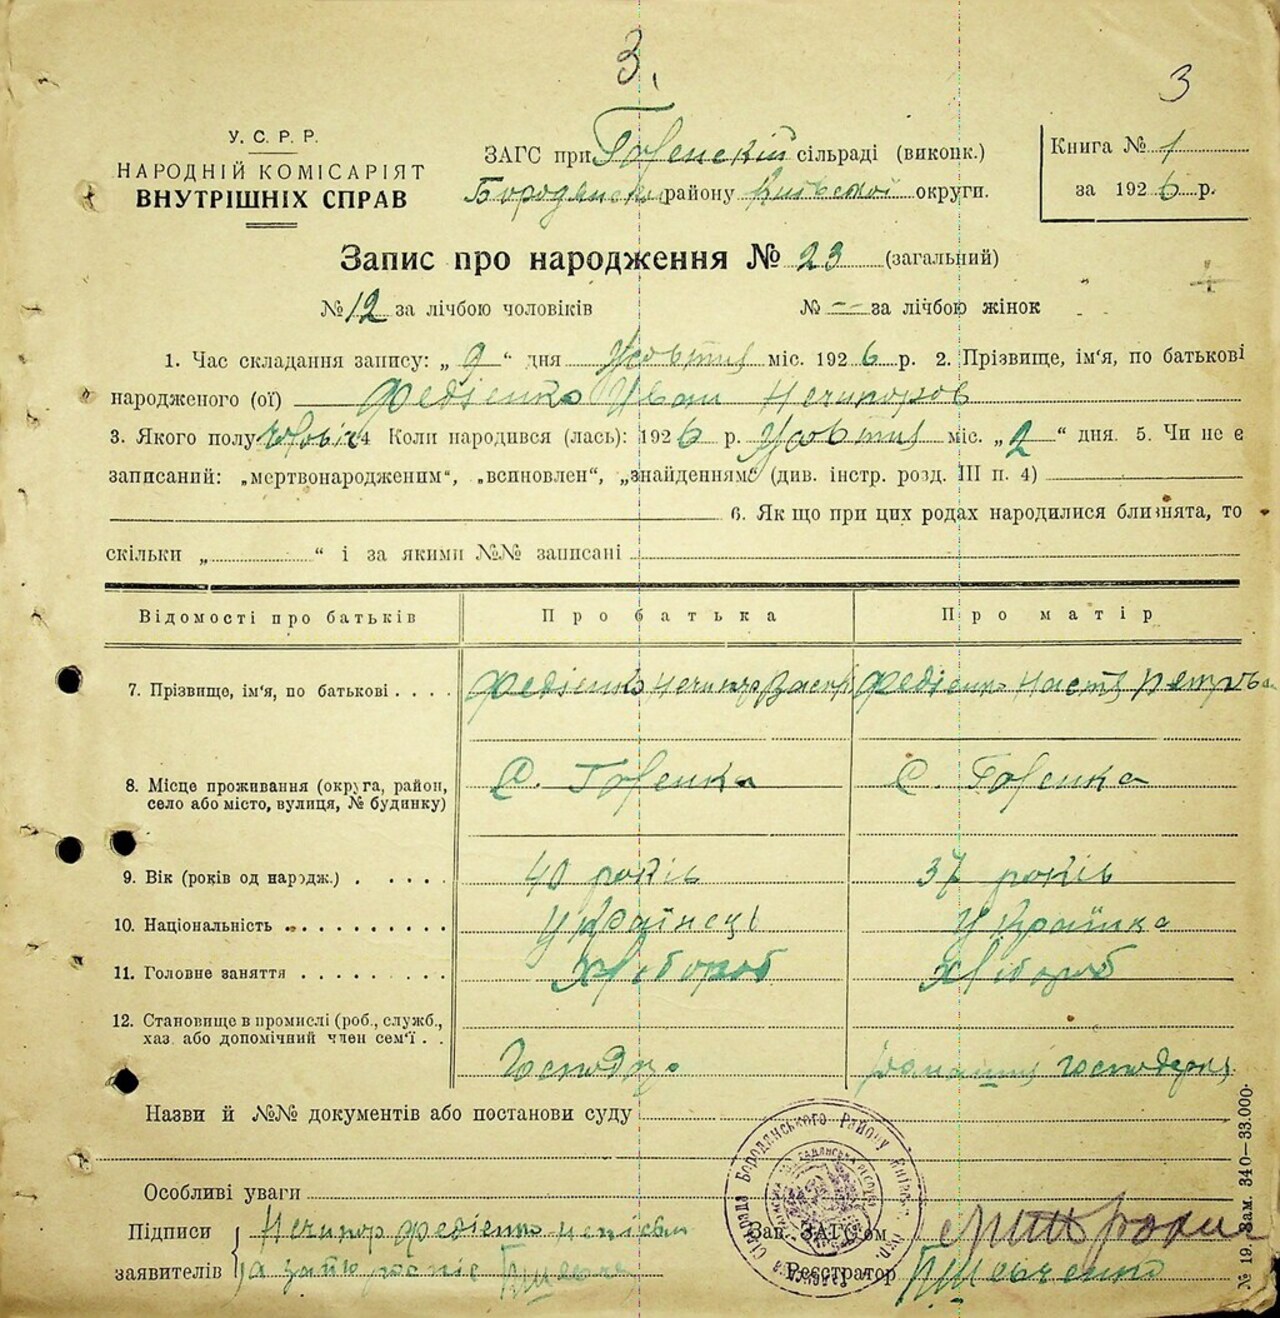 3.
3
У. С. Р. Р.
НАРОДНІЙ КОМІСАРІЯТ
ВНУТРІШНІХ СПРАВ
ЗАГС при сільраді (виконк.)
району Київской округи.
Книга № 1
за 1926 р.
Запис про народження № 23 (загальний)
№ 12 за лічбою чоловіків № -- за лічбою жінок
1. Час складання запису: „ 9 “ дня міс. 1926 р. 2. Прізвище, ім'я, по батькові
народженого (ої) Федієнко Иван Нечипоров
3. Якого полу 4 Коли народився (лась): 1926 р. міс. „ 2 “ дня. 5. Чи не є
записаний: „мертвонародженим“, „всиновлен“, „знайденям“ (див. інстр. розд. III п. 4)
6. Як що при цих родах народилися близнята, то
скільки „ “ і за якими №№ записані
Відомості про батьків Про батька Про матір
7. Прізвище, ім'я, по батькові . . . . Федієнко Федієнко Настя
8. Місце проживання (округа, район, С. Голенка С. Голенка
село або місто, вулиця, № будинку)
9. Вік (років од народж.) . . . . . 40 років 37 років
10. Національність . . . . . . . . . . Українець Українка
11. Головне заняття . . . . . . . . . Хлібороб Хлібороб
12. Становище в промислі (роб., служб.,
хаз. або допомічний член сем'ї . .
Назви й №№ документів або постанови суду
Особливі уваги
Підписи Нечипор Федієнко
заявителів а за його
Зав. ЗАГС'ом
Реєстратор Шевченко
№ 19. Зам. 340—33.000.